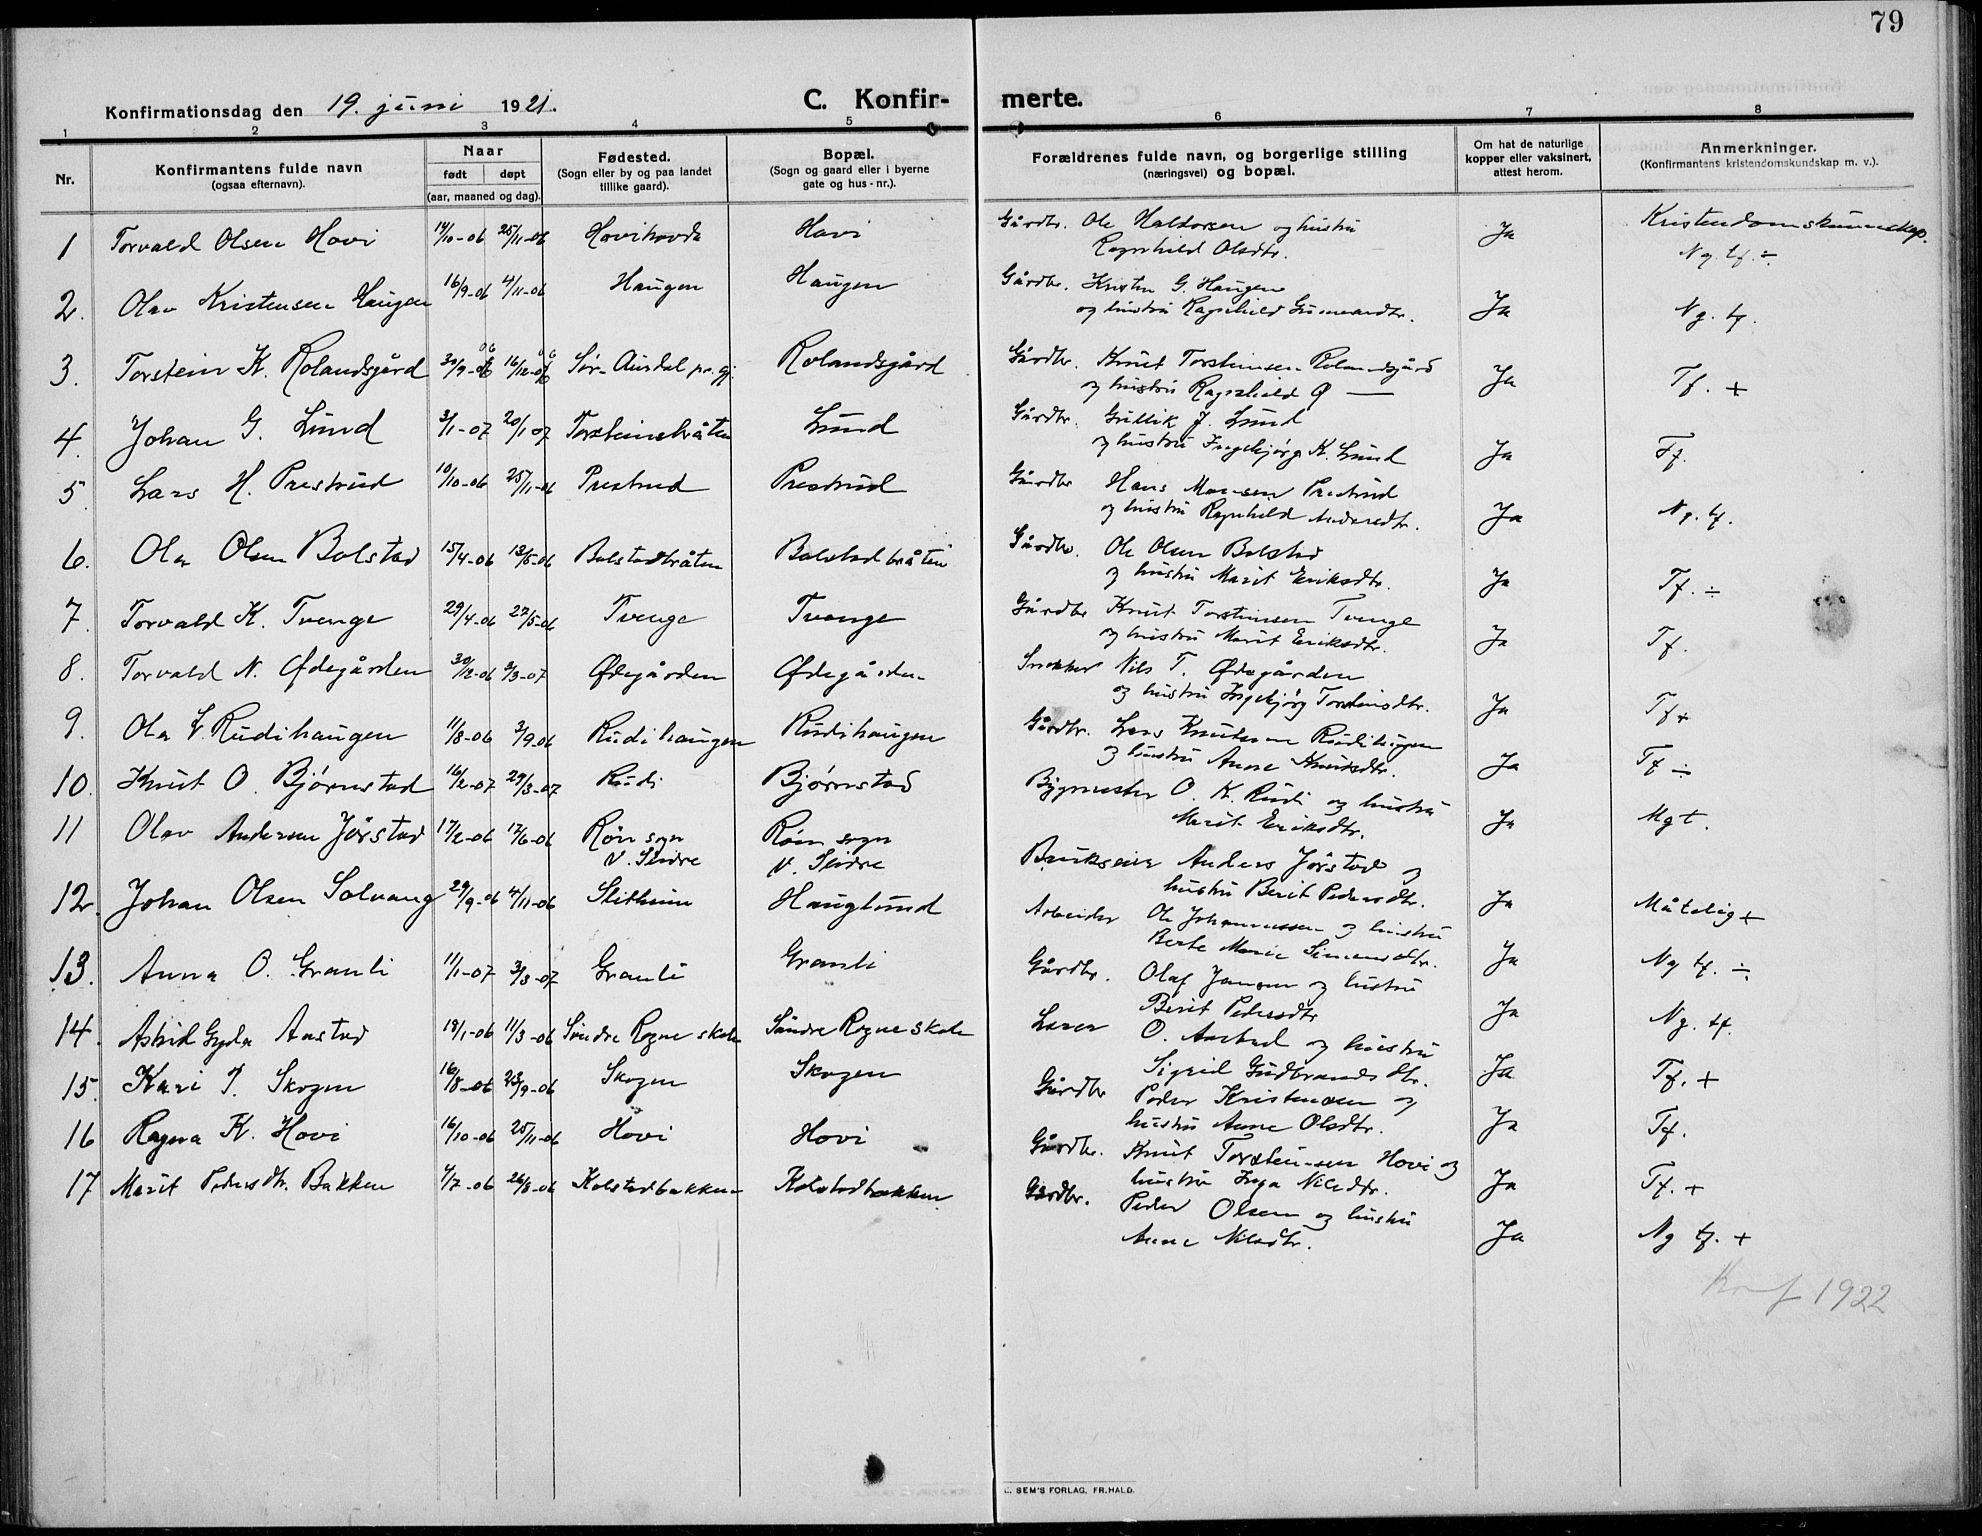 79
Konfirmationsdag den 19. juni 1921.
C. Konfir-merte.
1 2 3 4 5 6 7 8
Nr.
Konfirmantens fulde navn
(ogsaa efternavn).
Naar
født døpt
(aar, maaned og dag).
Fødested.
(Sogn eller by og paa landet
tillike gaard).
Bopæl.
(Sogn og gaard eller i byerne
gate og hus-nr.).
Forældrenes fulde navn, og borgerlige stilling
(næringsvei) og bopæl.
Om hat de naturlige
kopper eller vaksinert,
attest herom.
Anmerkninger.
(Konfirmantens kristendomskundskap m. v.).
Kristendomskunnskap.
1 Torvald Olsen Hovi 14/10-06 25/11-06 Hovihovda Hovi Gårdbr. Ole Haldorsen og hustru
Ragnhild Olsdtr. Ja Ng. tf. ÷
2. Olav Kristensen Haugen 16/9-06 4/11-06 Haugen Haugen Gårdbr. Kristen G. Haugen
og hustru Ragnhild Gunnardtr. Ja Ng. tf.
3. Torstein K. Rolandsgård 30/9-06 16/12-06 Sør-Aurdal pr.gj. Rolandsgård Gårdbr. Knut Torsteinsen Rolandsgård
og hustru Ragnhild Ø — Ja Tf. +
4. Johan G. Lund 3/1-07 20/1 07 Torsteinsbråten Lund Gårdbr. Gullik J. Lund
og hustru Ingebjørg K. Lund Ja Tf.
5. Lars H. Prestrud 10/10-06 25/11-06 Prestrud Prestrud Gårdbr Hans Monsen Prestrud
og hustru Ragnhild Andersdtr. Ja Ng. tf.
6. Ola Olsen Bolstad 15/4-06 13/5-06 Bolstadbråten Bolstadbråten Gårdbr. Ole Olsen Bolstad
og hustru Marit Eriksdtr. Ja Tf. ÷
7. Torvald K. Tvenge 29/4-06 27/5-06 Tvenge Tvenge Gårdbr Knut Torsteinsen Tvenge
og hustru Marit Eriksdtr. Ja Tf.
8. Torvald N. Ødegården 30/12-06 3/3-07 Ødegården Ødegården Snekker Nils T. Ødegården
og hustru Ingebjørg Torsteinsdtr. Ja Tf +
9. Ola L. Rudihaugen 11/8-06 2/9-06 Rudihaugen Rudihaugen Gårdbr. Lars Knutsen Rudihaugen
og hustru Anne Knutsdtr. Ja Tf ÷
10. Knut O. Bjørnstad 16/2-07 29/3-07 Rudi Bjørnstad Bygmester O. K. Rudi og hustru
Marit Eriksdtr. Ja Mgt.
11 Olav Andersen Jørstad 17/2-06 17/6-06 Røn sogn
V. Slidre Røn sogn
V. Slidre Brukseier Anders Jørstad og
hustru Berit Pedersdtr. Ja Måtelig +
12. Johan Olsen Solvang 29/9-06 4/11-06 Hauglund Arbeider Ole Johannessen og hustru
Berte Marie Simensdtr. Ja Ng tf. ÷
13. Anna O. Granli 11/1-07 3/3-07 Granli Granli Gårdbr. Olaf Jansen og hustru
Berit Pedersdtr Ja Ng. tf.
14. Astrid Gyda Aastad 18/1-06 11/3-06 Søndre Rogne skole Søndre Rogne skole Lærer O. Aastad og hustru
Sigrid Gudbrandsdtr. Ja Tf. +
15. Kari P. Skogen 16/8-06 23/9-06 Skogen Skogen Gårdbr Peder Kristensen og
hustru Anne Olsdtr. Ja Tf.
16 Ragna K. Hovi 16/10-06 25/11-06 Hovi Hovi Gårdbr. Knut Torsteinsen Hovi og
hustru Inga Nilsdtr. Ja Tf. +
17 Marit Pedersdtr. Bakken 4/7-06 26/8-06 Kolstadbakken Kolstadbakken Gårdbr. Peder Olsen og hustru
Anne Nilsdtr. Ja Ng tf. +
Konf 1922
SEM'S FORLAG, FR.HALD.